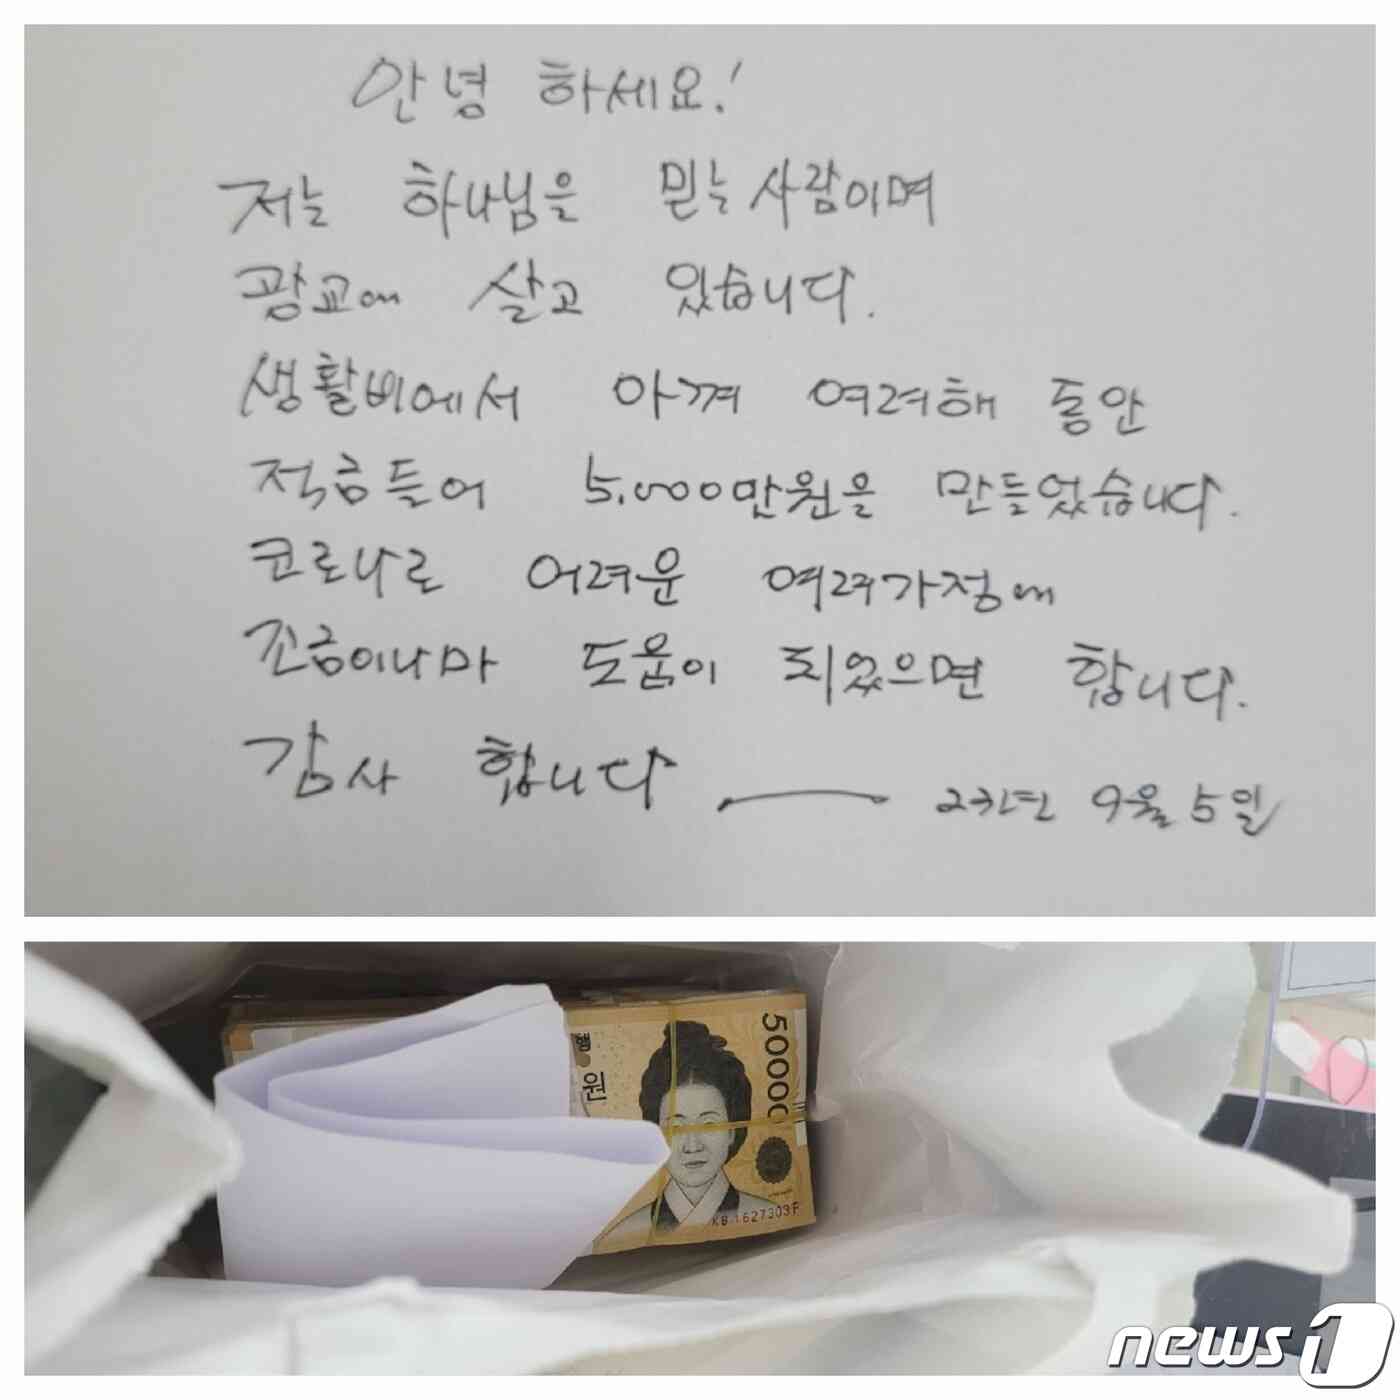 안녕 하세요!
저는 하나님을 믿는 사람이며
광교에 살고 있습니다.
생활비에서 아껴 여러해 동안
적금들어 5.000만원을 만들었습니다.
코로나로 어려운 여러가정에
조금이나마 도움이 되었으면 합니다.
감사 합니다 23년 9월 5일
50000
원
KB 1627303F
news1